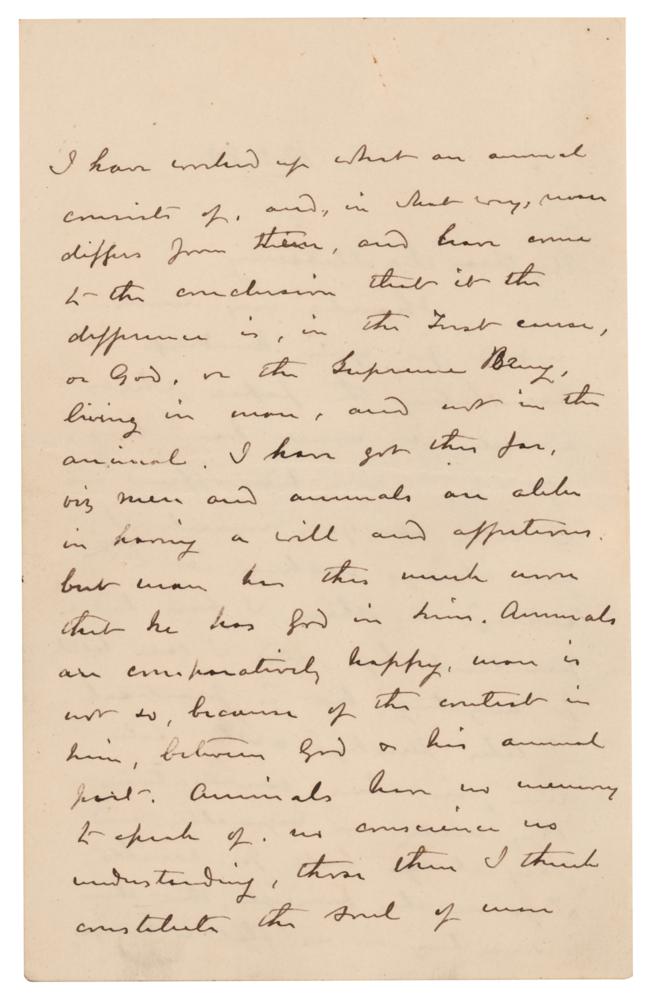 I have worked up what an animal
consists of, and, in what way, man
differs from them, and have come
to the conclusion that it the
difference is, in the First cause,
or God, or the Supreme Being,
living in man, and not in the
animal. I have got thus far,
viz men and animals are alike
in having a will and affections.
but man has this much more
that he has God in him. Animals
are comparatively happy, man is
not so, because of the contest in
him, between God & his animal
part. Animals have no memory
to speak of. no conscience no
understanding, these then I think
constitute the soul of man